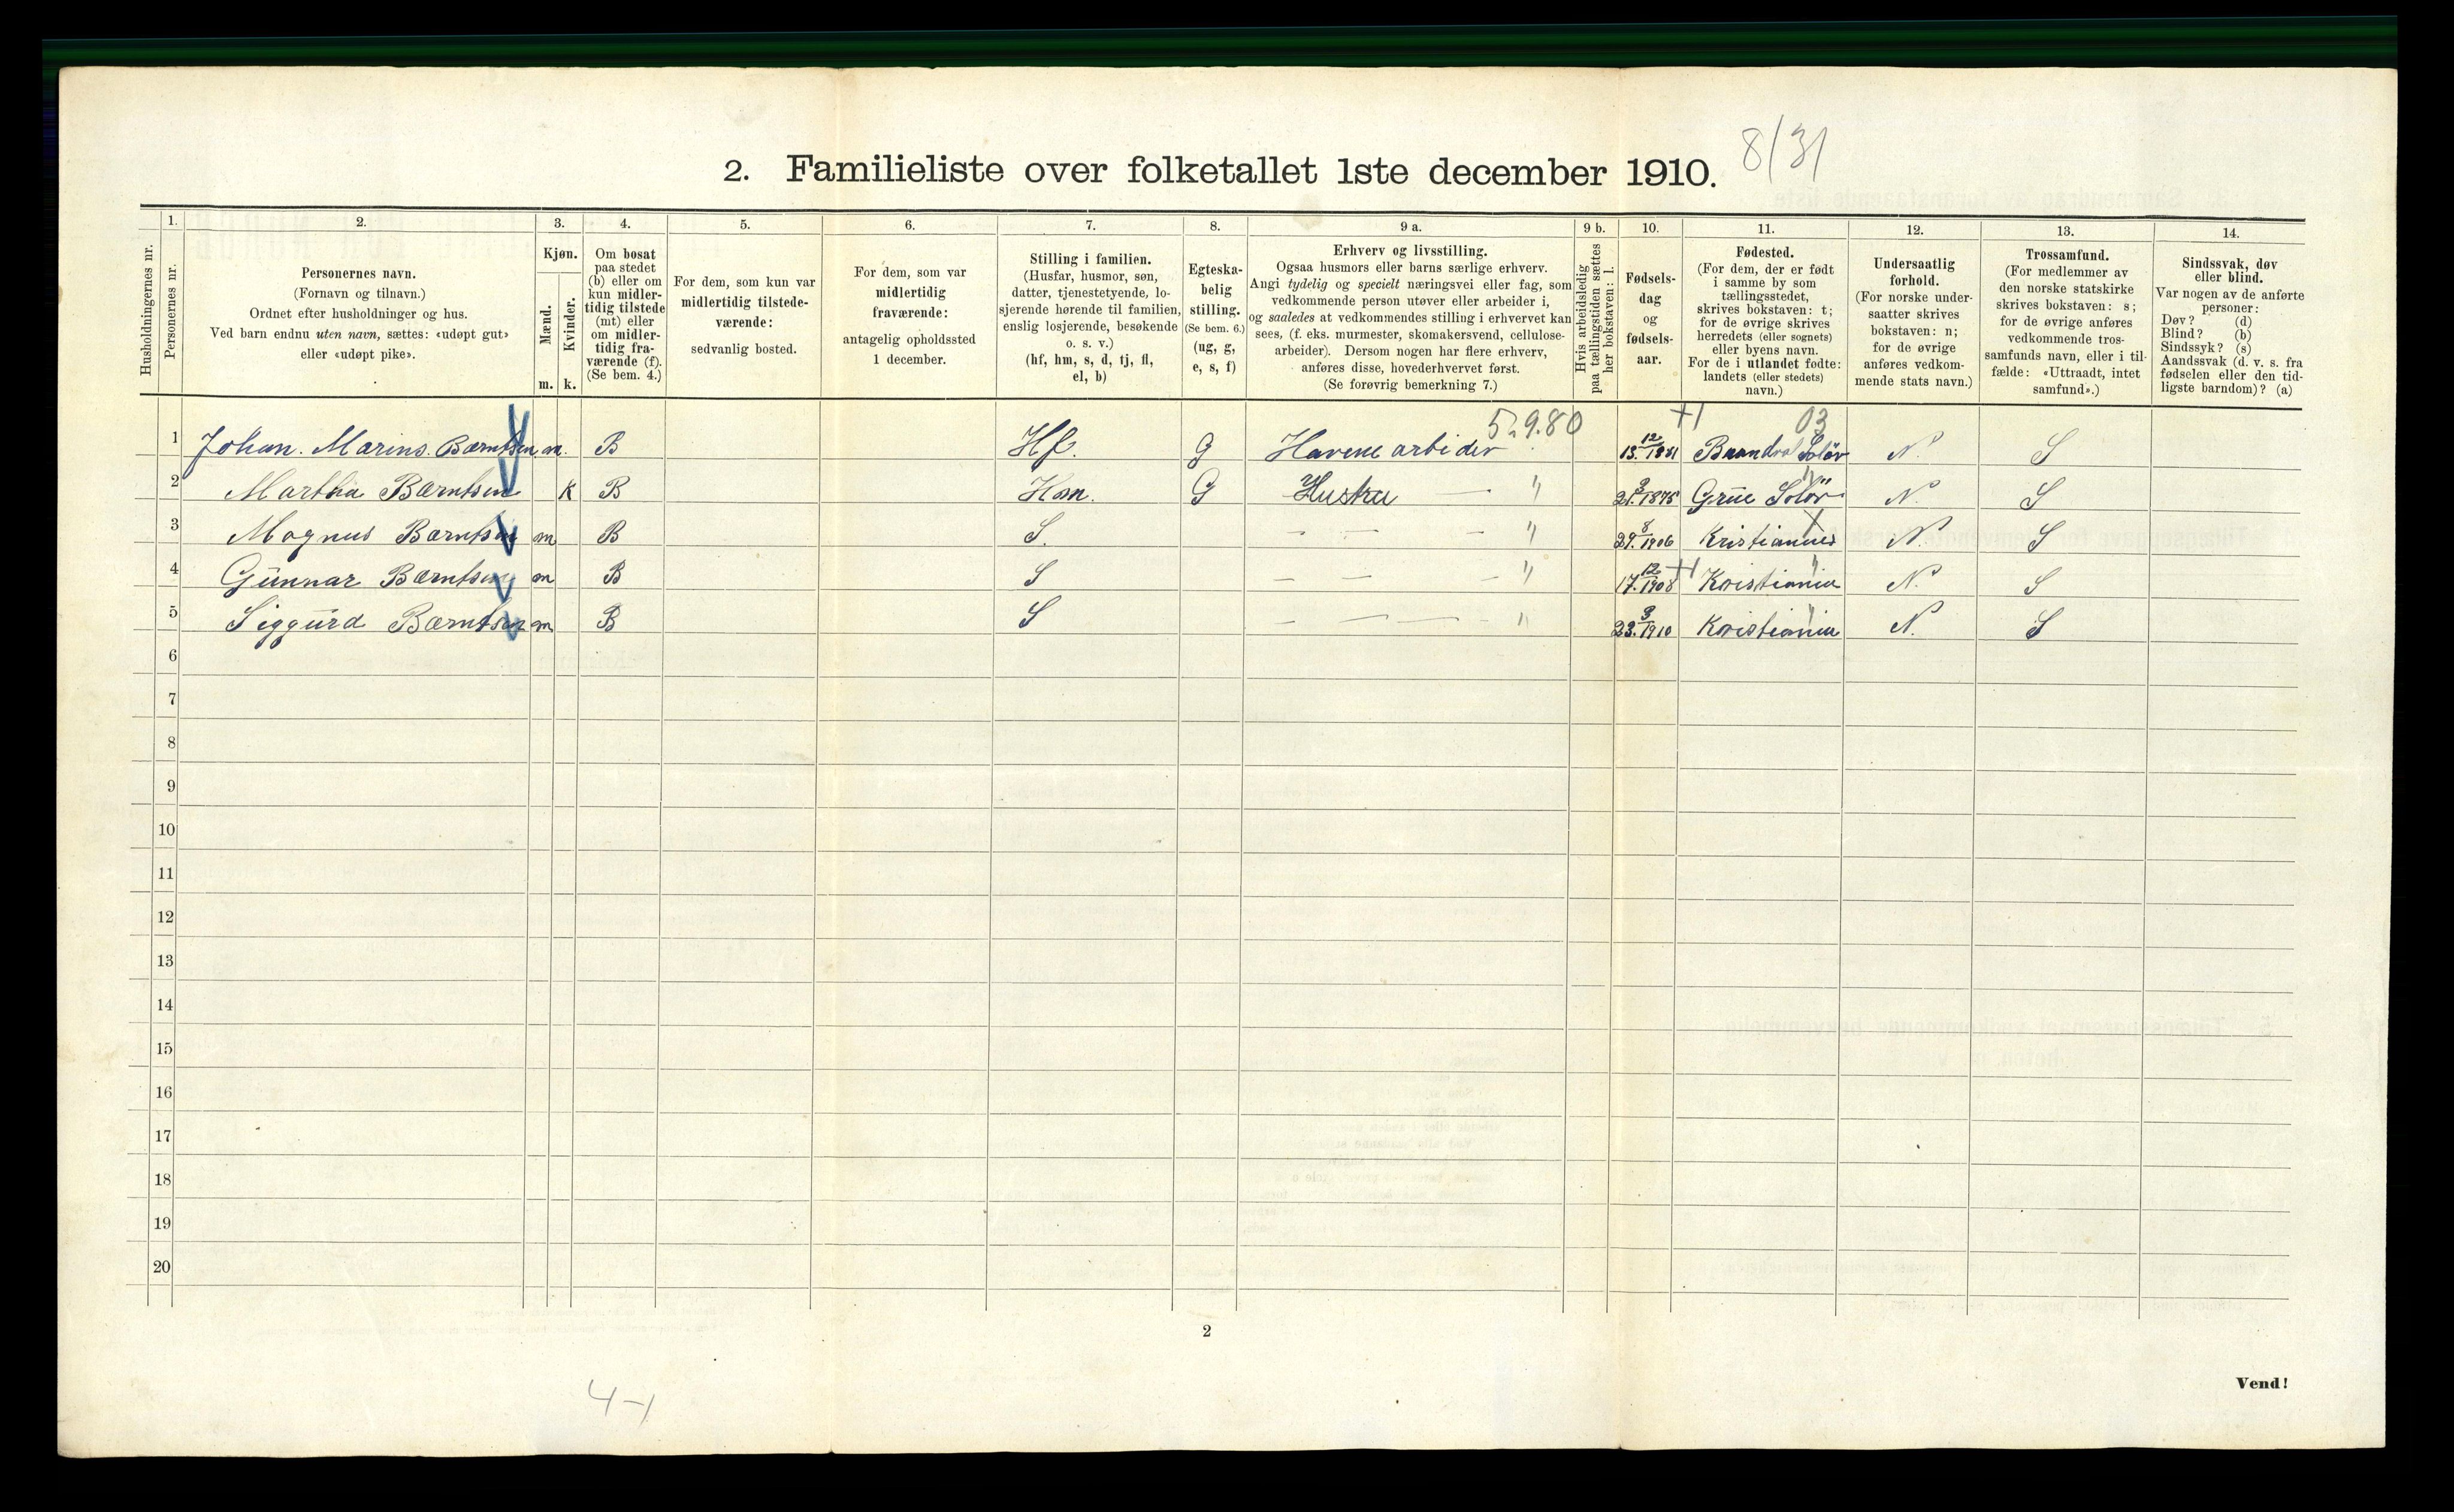 2. Familieliste over folketallet 1ste december 1910. 8/31
Husholdningernes nr.
1.
Personernes nr.
2.
Personernes navn.
(Fornavn og tilnavn.)
Ordnet efter husholdninger og hus.
Ved barn endnu uten navn, sættes: «udøpt gut»
eller «udøpt pike».
3.
Kjøn.
Mænd.
Kvinder.
m. k.
4.
Om bosat
paa stedet
(b) eller om
kun midler-
tidig tilstede
(mt) eller
om midler-
tidig fra-
værende (f).
(Se bem. 4.)
5.
For dem, som kun var
midlertidig tilstede-
værende:
sedvanlig bosted.
6.
For dem, som var
midlertidig
fraværende:
antagelig opholdssted
1 december.
7.
Stilling i familien.
(Husfar, husmor, søn,
datter, tjenestetyende, lo-
sjerende hørende til familien,
enslig losjerende, besøkende
o. s. v.)
(hf, hm, s, d, tj, fl,
el, b)
8.
Egteska-
belig
stilling.
(Se bem. 6.)
(ug, g,
e, s, f)
9 a.
Erhverv og livsstilling.
Ogsaa husmors eller barns særlige erhverv.
Angi tydelig og specielt næringsvei eller fag, som
vedkommende person utøver eller arbeider i,
og saaledes at vedkommendes stilling i erhvervet kan
sees, (f. eks. murmester, skomakersvend, cellulose-
arbeider). Dersom nogen har flere erhverv,
anføres disse, hovederhvervet først.
(Se forøvrig bemerkning 7.)
9 b.
Hvis arbeidsledig
paa tællingstiden sættes
her bokstaven: l.
10.
Fødsels-
dag
og
fødsels-
aar.
11.
Fødested.
(For dem, der er født
i samme by som
tællingsstedet,
skrives bokstaven: t;
for de øvrige skrives
herredets (eller sognets)
eller byens navn.
For de i utlandet fødte:
landets (eller stedets)
navn.)
12.
Undersaatlig
forhold.
(For norske under-
saatter skrives
bokstaven: n;
for de øvrige
anføres vedkom-
mende stats navn.)
13.
Trossamfund.
(For medlemmer av
den norske statskirke
skrives bokstaven: s;
for de øvrige anføres
vedkommende tros-
samfunds navn, eller i til-
fælde: «Uttraadt, intet
samfund».)
14.
Sindssvak, døv
eller blind.
Var nogen av de anførte
personer:
Døv? (d)
Blind? (b)
Sindssyk? (s)
Aandssvak (d. v. s. fra
fødselen eller den tid-
ligste barndom)? (a)
03
1 Johan. Marius. Bærntsen m. B Hf. G Havne arbider 13. 12/1881 Brandval Solör N. S
2 Martha Bærntsen K B Hm. G Hustru — " 21. 3/1875 Grue Solör N. S
3 Magnus Bærntsen m B S. - - - " 29. 8/1906 N. S
4 Gunnar Bærntsen m B S - - - " 17. 12/1908 Kristiania N. S
5 Siggurd Bærntsen m B S - - - " 23. 3/1910 Kristiania N. S
6
7
8
9
10
11
12
13
14
15
16
17
18
19
20
2
Vend!
4-1